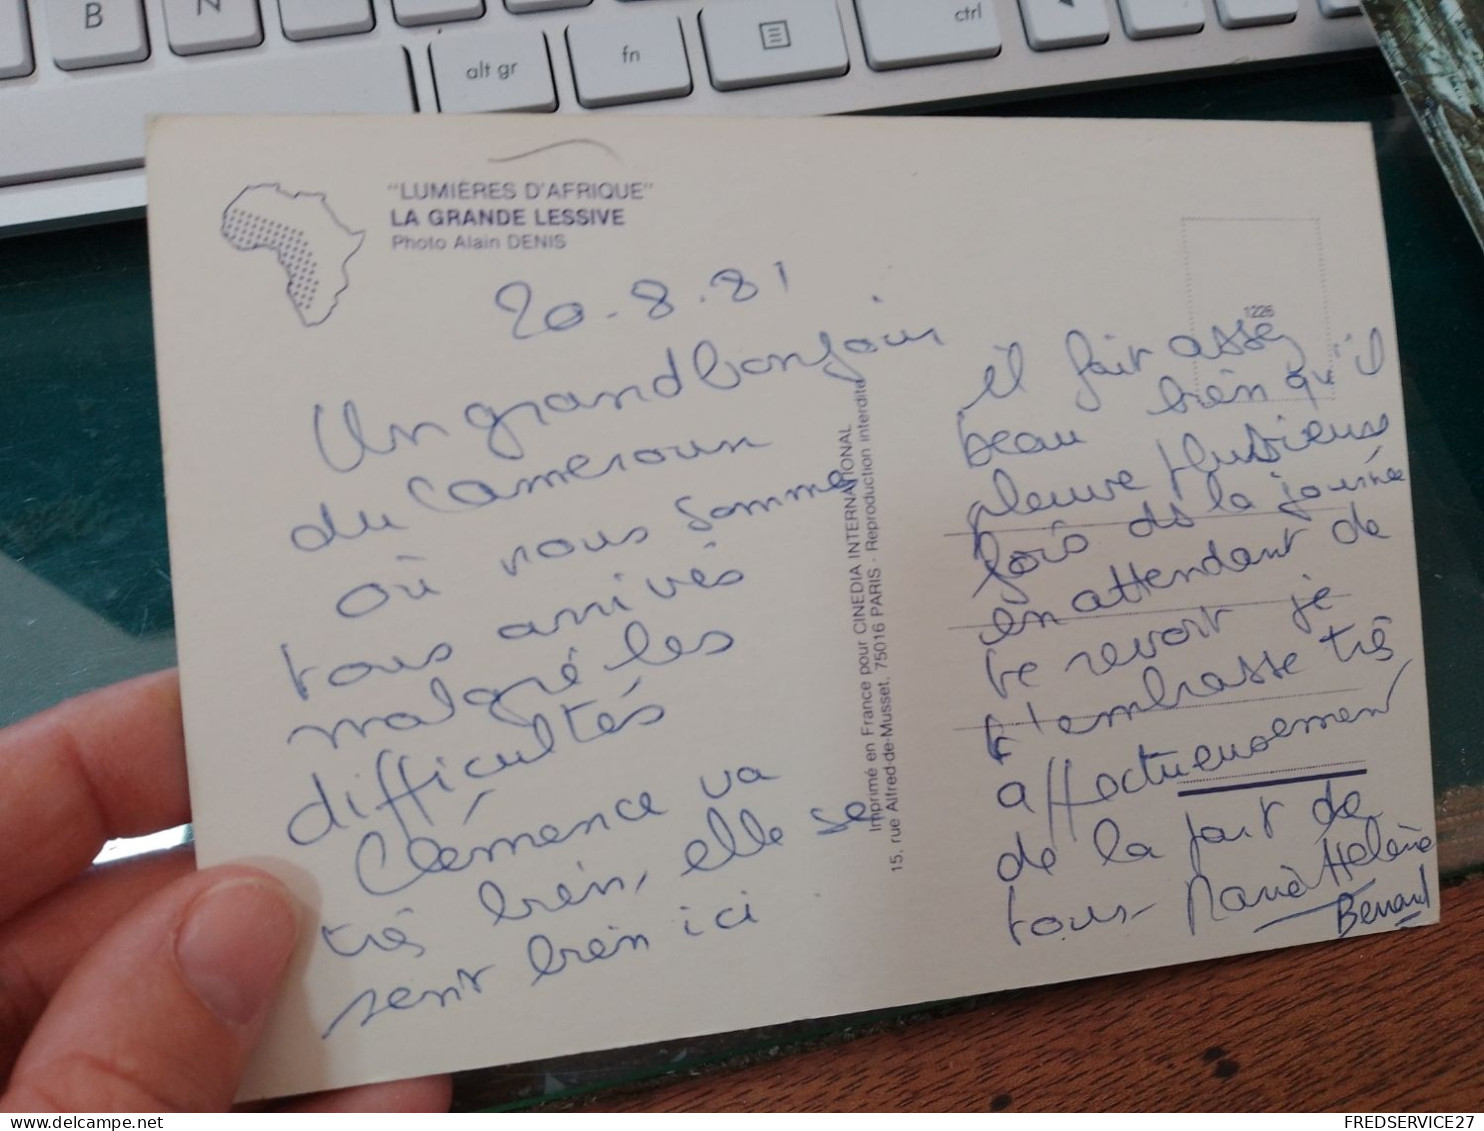 B
N
alt gr
fn
ctrl
"LUMIÈRES D'AFRIQUE"
LA GRANDE LESSIVE
Photo Alain DENIS
20.8.81
Un grand bonjour
du Cameroun
où nous sommes
tous arrivés
malgré les
difficultés
Clémence va
très bien, elle se
sent bien ici.
Imprimé en France pour CINEDIA INTERNATIONAL
15, rue Alfred-de-Musset, 75016 PARIS - Reproduction interdite
1226
il fait assez
beau bien qu'il
pleuve plusieurs
fois ds la journée
en attendant de
te revoir je
t'embrasse très
affectueusement
de la part de
tous - Marie Hélène
Benard
FREDSERVICE27